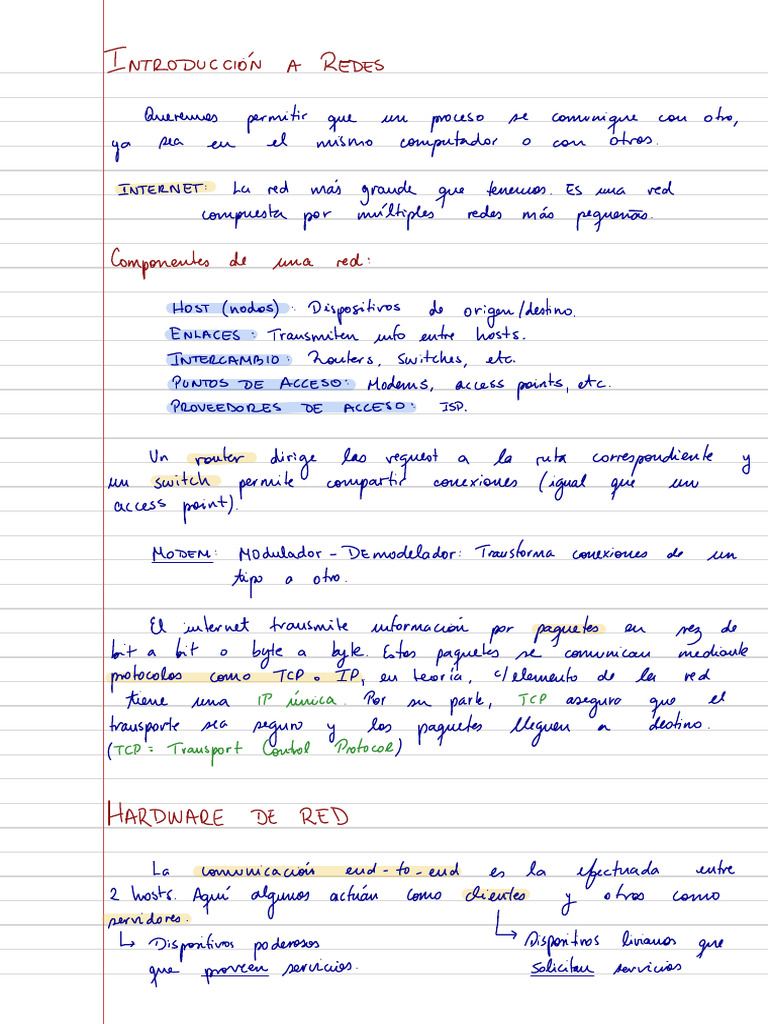 INTRODUCCIÓN A REDES
Queremos permitir que un proceso se comunique con otro,
ya sea en el mismo computador o con otros.
INTERNET: La red más grande que tenemos. Es una red
compuesta por múltiples redes más pequeñas.
Componentes de una red:
HOST (nodos): Dispositivos de origen/destino.
ENLACES: Transmiten info entre hosts.
INTERCAMBIO: Routers, switches, etc.
PUNTOS DE ACCESO: Modems, access points, etc.
PROVEEDORES DE ACCESO: ISP.
Un router dirige las request a la ruta correspondiente y
un switch permite compartir conexiones (igual que un
access point).
MODEM: MOdulador - DEmodelador: Transforma conexiones de un
tipo a otro.
El internet transmite información por paquetes en vez de
bit a bit o byte a byte. Estos paquetes se comunican mediante
protocolos como TCP o IP, en teoría, c/elemento de la red
tiene una IP única. Por su parte, TCP asegura que el
transporte sea seguro y los paquetes lleguen a destino.
(TCP = Transport Control Protocol)
HARDWARE DE RED
La comunicación end-to-end es la efectuada entre
2 hosts. Aquí algunos actúan como clientes y otros como
servidores.
↳ Dispositivos poderosos que proveen servicios.
↳ Dispositivos livianos que solicitan servicios